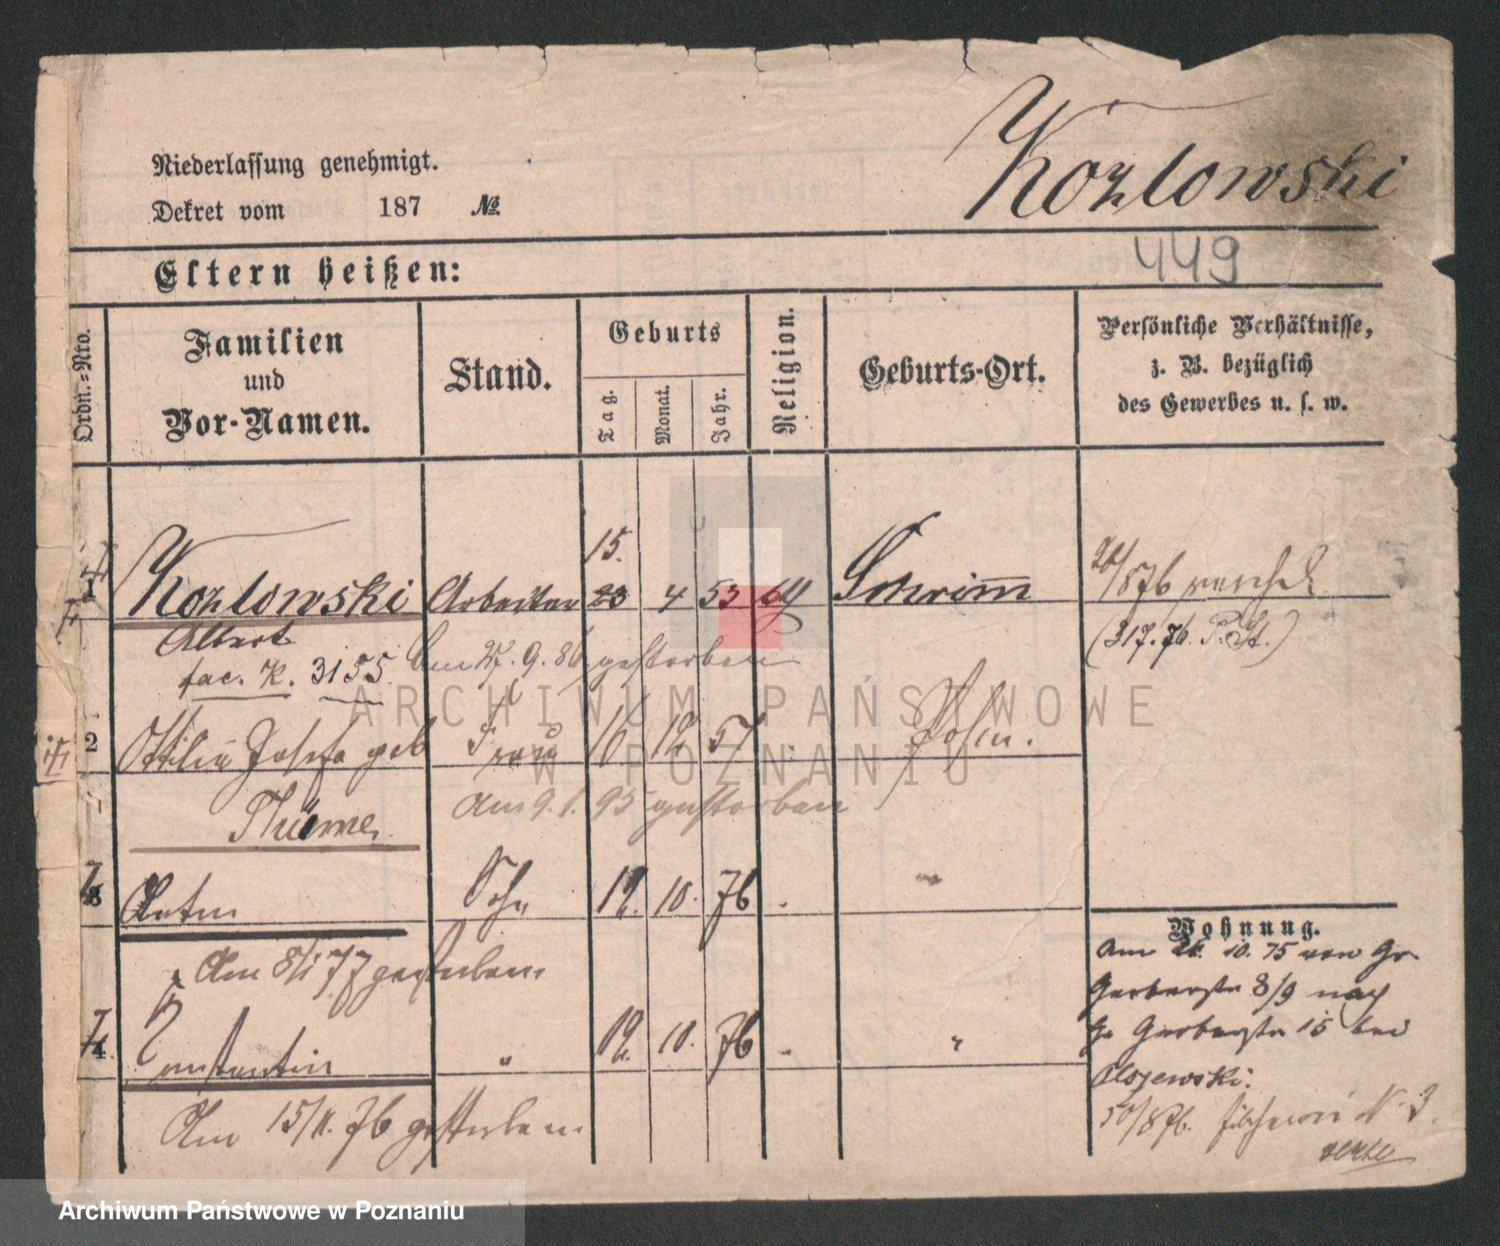 Niederlassung genehmigt.
Dekret vom 187 №
Kozlowski
449
Eltern heißen:
Ordn.=Nro.
Familien
und
Vor-Namen.
Stand.
Geburts
Tag.
Monat.
Jahr.
Religion.
Geburts-Ort.
Persönliche Verhältnisse,
z. B. bezüglich
des Gewerbes u. s. w.
15.
1 Kozlowski Arbeiter 23 4 53 Schrimm
Albert
fac. K. 3155 Am 27. 9. 86 gestorben
(317.76. P. St.)
2 Ottilia Josefa geb Frau 16 12 57 Posen.
Thieme.
am 9. 1. 95 gestorben
3 Anton Sohn 19. 10. 76
Am 8/1 77 gestorben
4. Konstantin " 19. 10. 76 "
Am 15/11. 76 gestorben
Wohnung.
Am 10. 75 von Gr.
Gerberstr 8/9 nach
Gr Gerberstr 15 bei
N 3.
ARCHIWUM PAŃSTWOWE
W POZNANIU
Archiwum Państwowe w Poznaniu